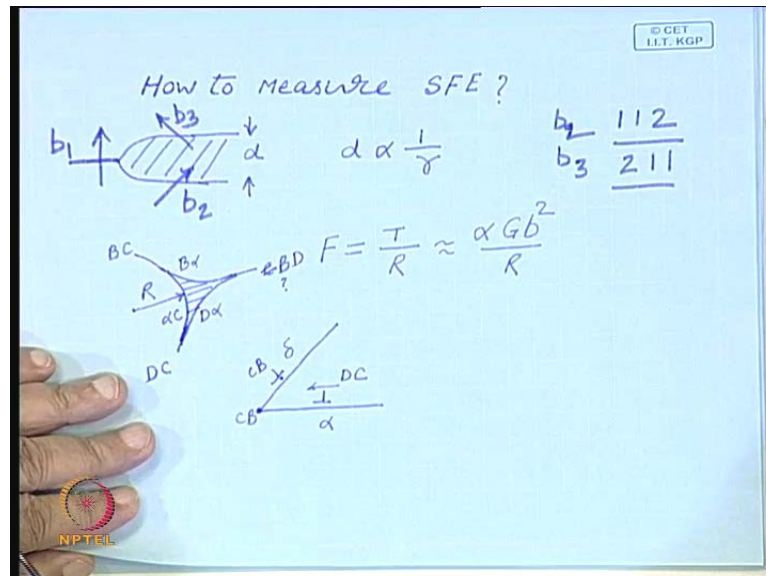 © CET
I.I.T. KGP
How to measure SFE ?
b₁ b₃ d
b₂
d α 1/γ
b₂ 112
b₃ 211
BC Bα BD
?
R αC Dα
DC
F = T/R ≈ αGb²/R
CB δ DC
CB ⊥
α
NPTEL